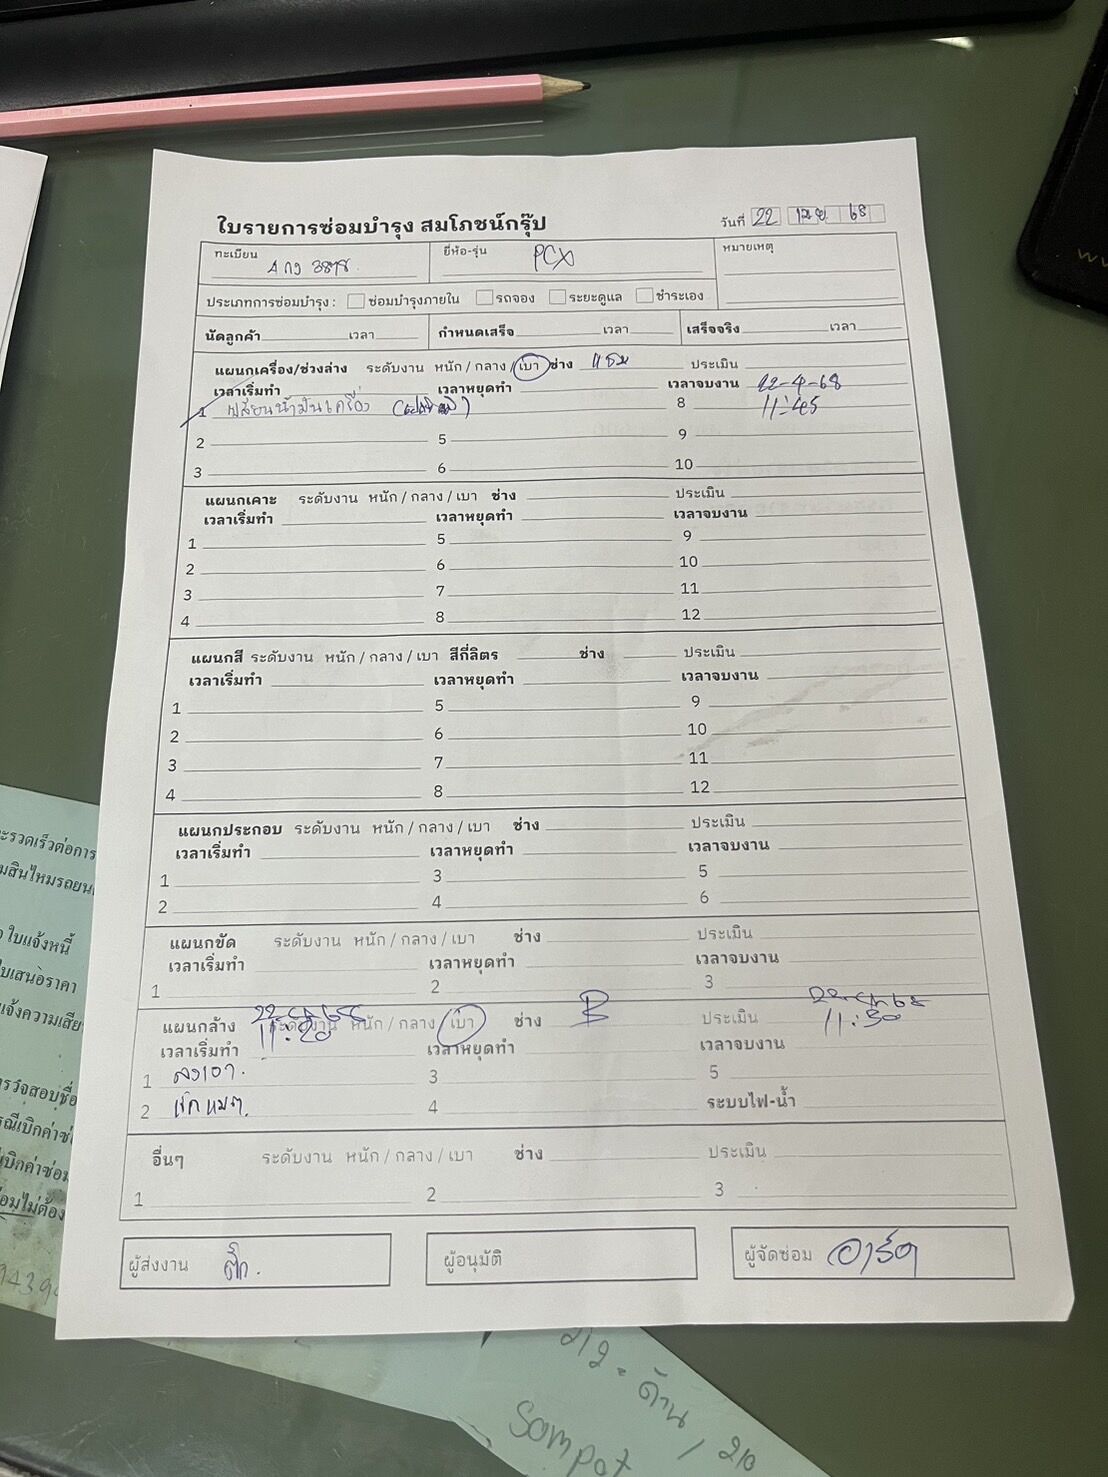 ใบรายการซ่อมบำรุง สมโภชน์กรุ๊ป วันที่ 22 เม.ย. 68
ทะเบียน 4 กง ยี่ห้อ-รุ่น PCX หมายเหตุ
ประเภทการซ่อมบำรุง : ซ่อมบำรุงภายใน รถจอง ระยะดูแล ชำระเอง
นัดลูกค้า เวลา กำหนดเสร็จ เวลา เสร็จจริง เวลา
แผนกเครื่อง/ช่วงล่าง ระดับงาน หนัก / กลาง / เบา ช่าง ประเมิน
เวลาเริ่มทำ เวลาหยุดทำ เวลาจบงาน 22-4-68
1 เปลี่ยนน้ำมันเครื่อง 8 11:45
2 5 9
3 6 10
แผนกเคาะ ระดับงาน หนัก / กลาง / เบา ช่าง ประเมิน
เวลาเริ่มทำ เวลาหยุดทำ เวลาจบงาน
1 5 9
2 6 10
3 7 11
4 8 12
แผนกสี ระดับงาน หนัก / กลาง / เบา สีกี่ลิตร ช่าง ประเมิน
เวลาเริ่มทำ เวลาหยุดทำ เวลาจบงาน
1 5 9
2 6 10
3 7 11
4 8 12
แผนกประกอบ ระดับงาน หนัก / กลาง / เบา ช่าง ประเมิน
เวลาเริ่มทำ เวลาหยุดทำ เวลาจบงาน
1 3 5
2 4 6
แผนกขัด ระดับงาน หนัก / กลาง / เบา ช่าง ประเมิน
เวลาเริ่มทำ เวลาหยุดทำ เวลาจบงาน
1 2 3
22-4-68 22-4-68
แผนกล้าง 11:20 ระดับงาน หนัก / กลาง / เบา ช่าง B ประเมิน 11:30
เวลาเริ่มทำ เวลาหยุดทำ เวลาจบงาน
1 3 5
2 4 ระบบไฟ-น้ำ
อื่นๆ ระดับงาน หนัก / กลาง / เบา ช่าง ประเมิน
1 2 3
ผู้ส่งงาน ผู้อนุมัติ ผู้จัดซ่อม อาร์ต
ะรวดเร็วต่อการ
มสินไหมรถยน
ใบแจ้งหนี้
ใบเสนอราคา
แจ้งความเสีย
รวจสอบชื่อ
รณีเบิกค่าซ่อ
เบิกค่าซ่อม
อมไม่ต้อง
2/2 - ด้าน / 210
Sompot